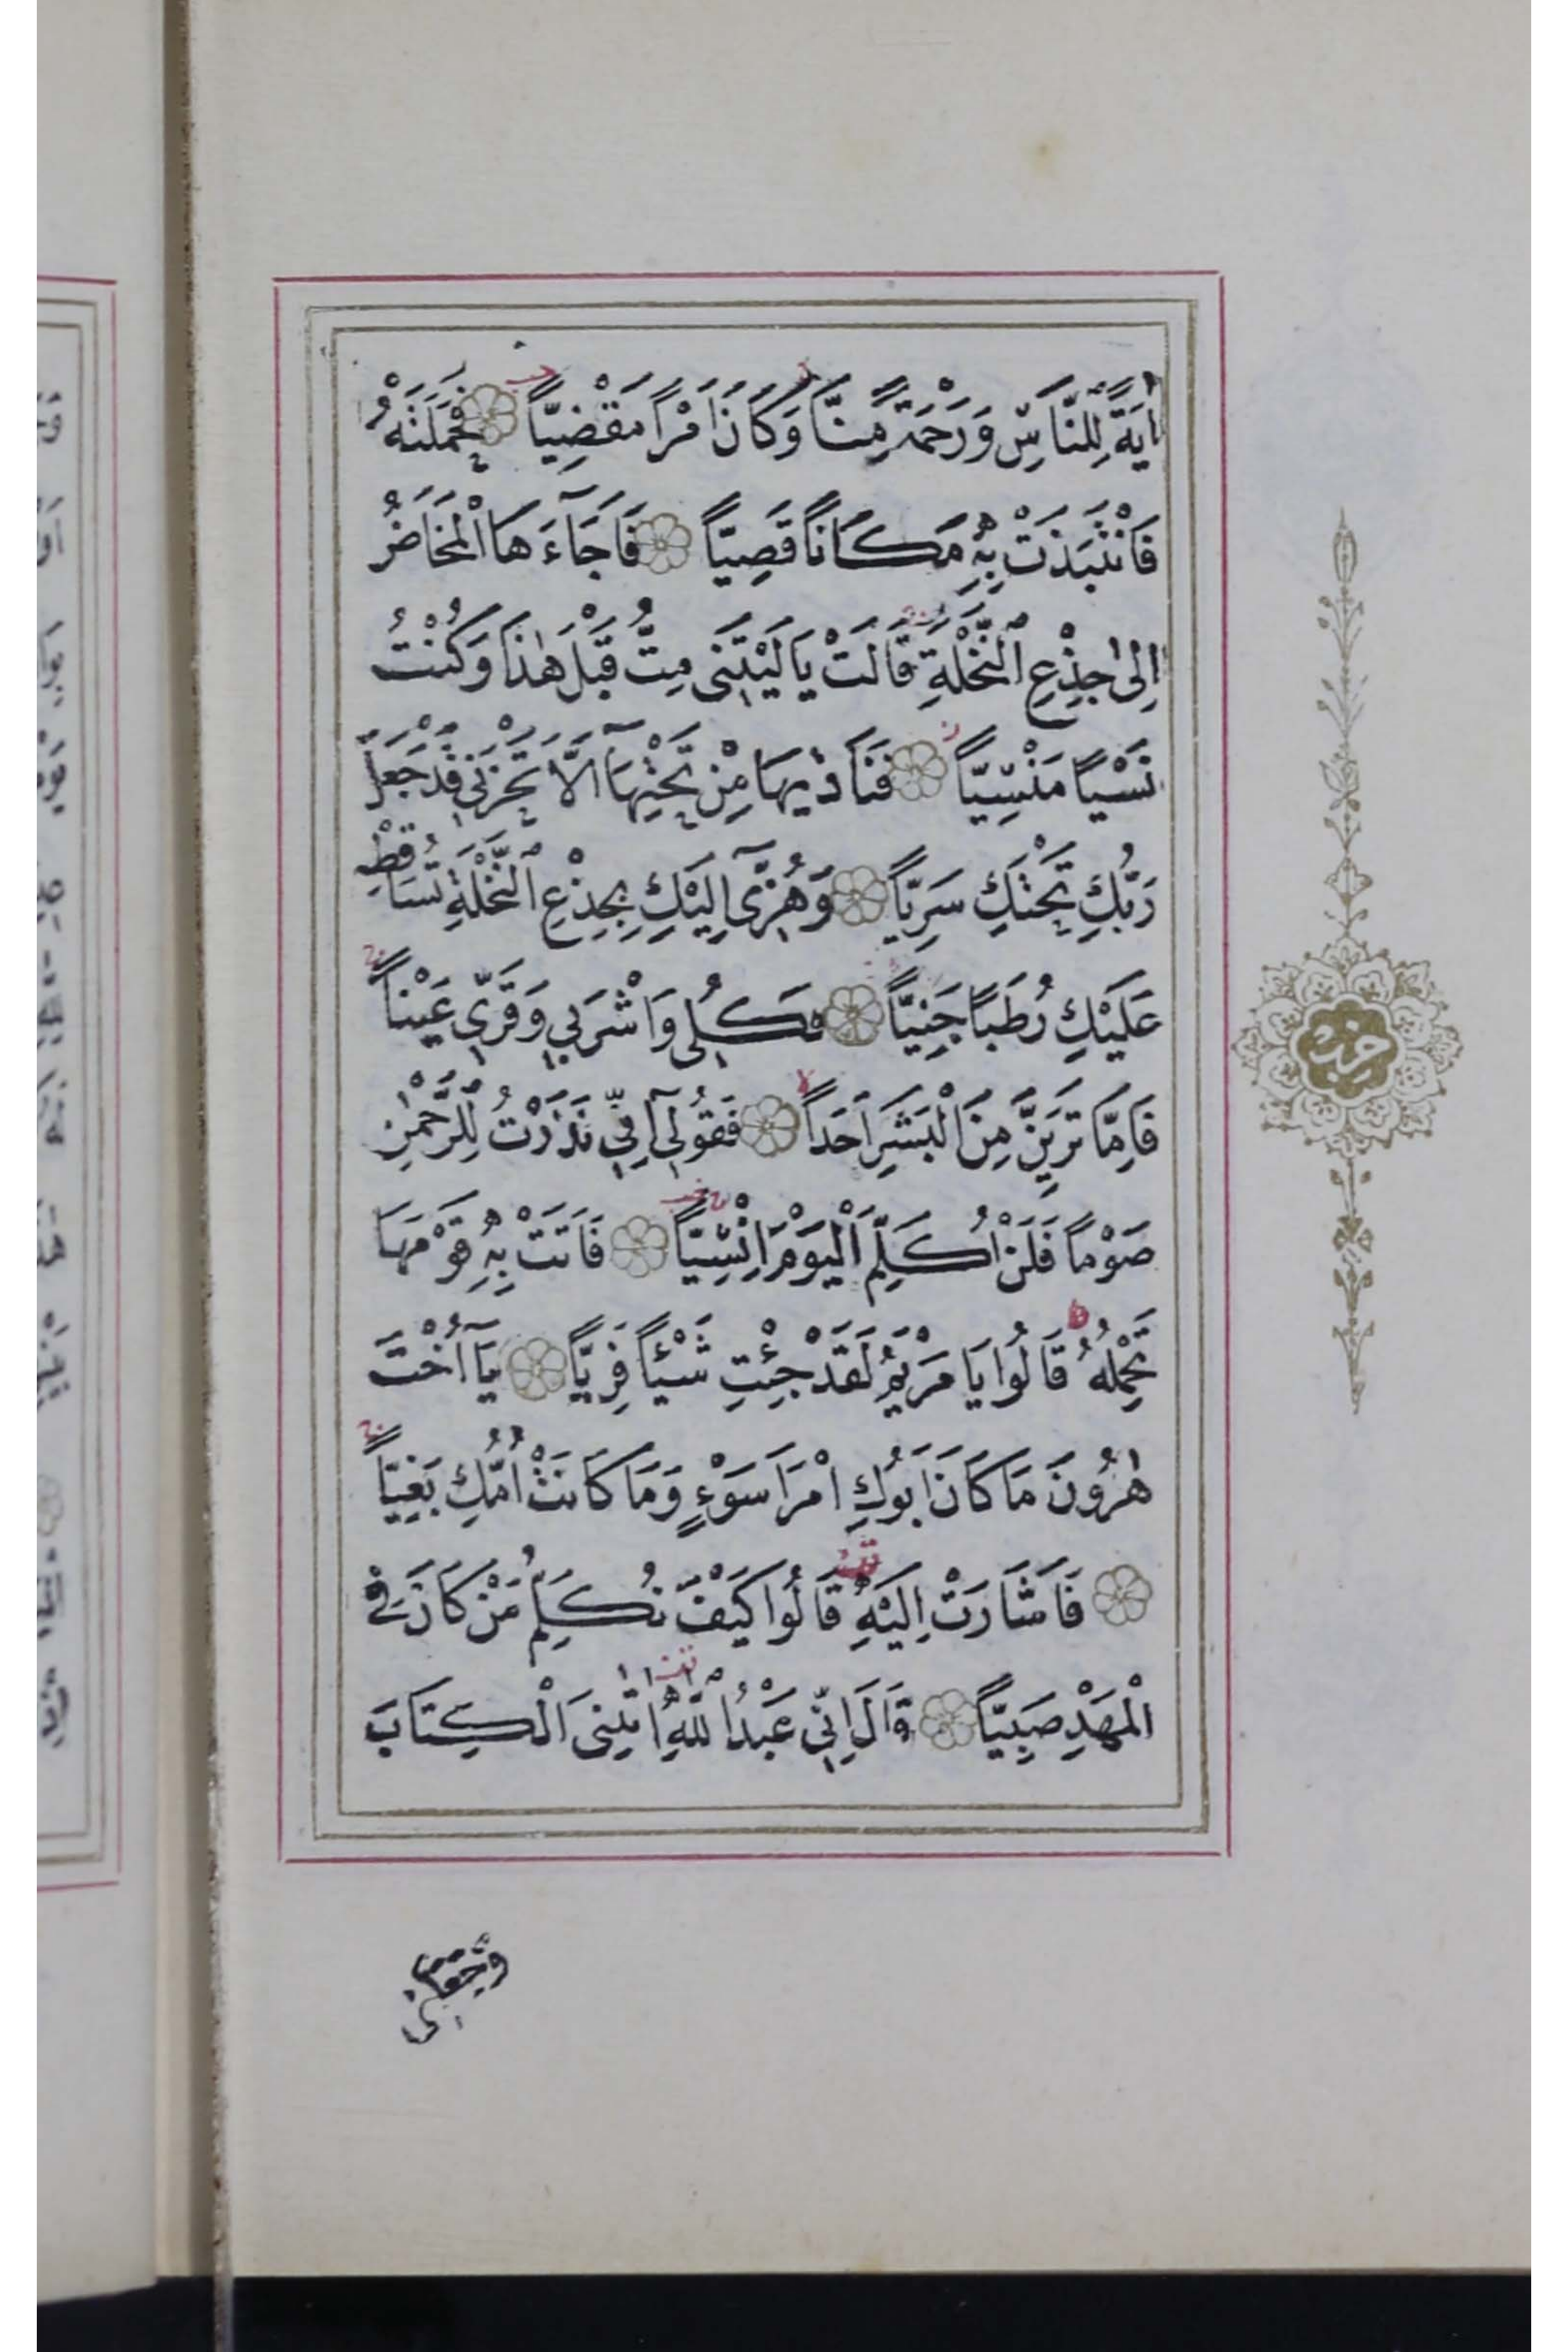 اٰيَةً لِلنَّاسِ وَرَحْمَةً مِنَّا وَكَانَ اَمْرًا مَقْضِيًّا ۝ فَحَمَلَتْهُ
فَانْتَبَذَتْ بِهٖ مَكَانًا قَصِيًّا ۝ فَاَجَٓاءَهَا الْمَخَاضُ
اِلٰى جِذْعِ النَّخْلَةِ قَالَتْ يَا لَيْتَنٖى مِتُّ قَبْلَ هٰذَا وَكُنْتُ
نَسْيًا مَنْسِيًّا ۝ فَنَادٰيهَا مِنْ تَحْتِهَٓا اَلَّا تَحْزَنٖى قَدْ جَعَلَ
رَبُّكِ تَحْتَكِ سَرِيًّا ۝ وَهُزّٖٓى اِلَيْكِ بِجِذْعِ النَّخْلَةِ تُسَاقِطْ
عَلَيْكِ رُطَبًا جَنِيًّا ۝ فَكُلٖى وَاشْرَبٖى وَقَرّٖى عَيْنًا
فَاِمَّا تَرَيِنَّ مِنَ الْبَشَرِ اَحَدًا ۝ فَقُولٖٓى اِنّٖى نَذَرْتُ لِلرَّحْمٰنِ
صَوْمًا فَلَنْ اُكَلِّمَ الْيَوْمَ اِنْسِيًّا ۝ فَاَتَتْ بِهٖ قَوْمَهَا
تَحْمِلُهُ قَالُوا يَا مَرْيَمُ لَقَدْ جِئْتِ شَيْئًا فَرِيًّا ۝ يَٓا اُخْتَ
هٰرُونَ مَا كَانَ اَبُوكِ امْرَاَ سَوْءٍ وَمَا كَانَتْ اُمُّكِ بَغِيًّا
۝ فَاَشَارَتْ اِلَيْهِ قَالُوا كَيْفَ نُكَلِّمُ مَنْ كَانَ فِى
الْمَهْدِ صَبِيًّا ۝ قَالَ اِنّٖى عَبْدُ اللّٰهِ اٰتٰينِىَ الْكِتَابَ
وَجَعَلَنٖى
حزب